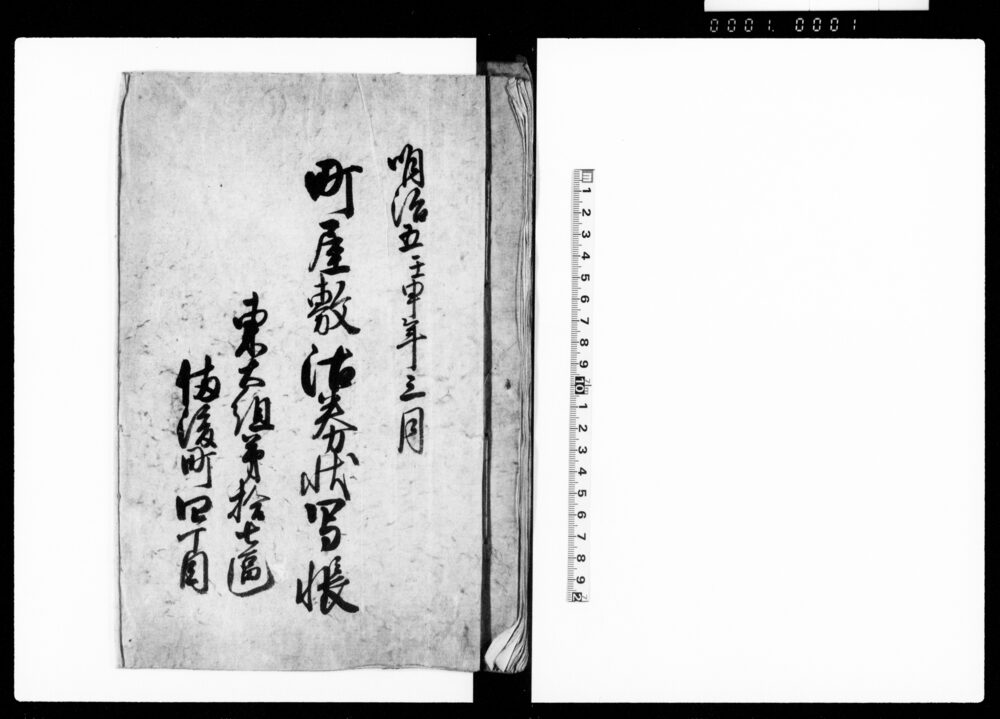 0001. 0001
明治五壬申年三月
町屋敷沽券状写帳
東大組第拾七區
備後町四丁目
m 1 2 3 4 5 6 7 8 9 10 1 2 3 4 5 6 7 8 9 2